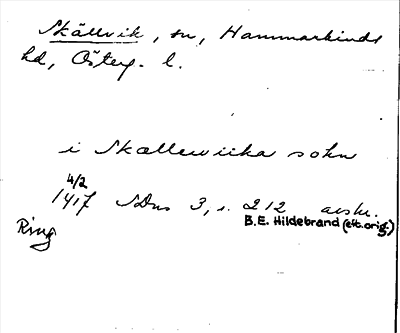 Skällvik, sn, Hammarkinds
hd, Österg. l.
i Skællewiika sokn
4/2
1417 SDns 3, s. 212 avskr.
B.E. Hildebrand (eft. orig.)
Ring